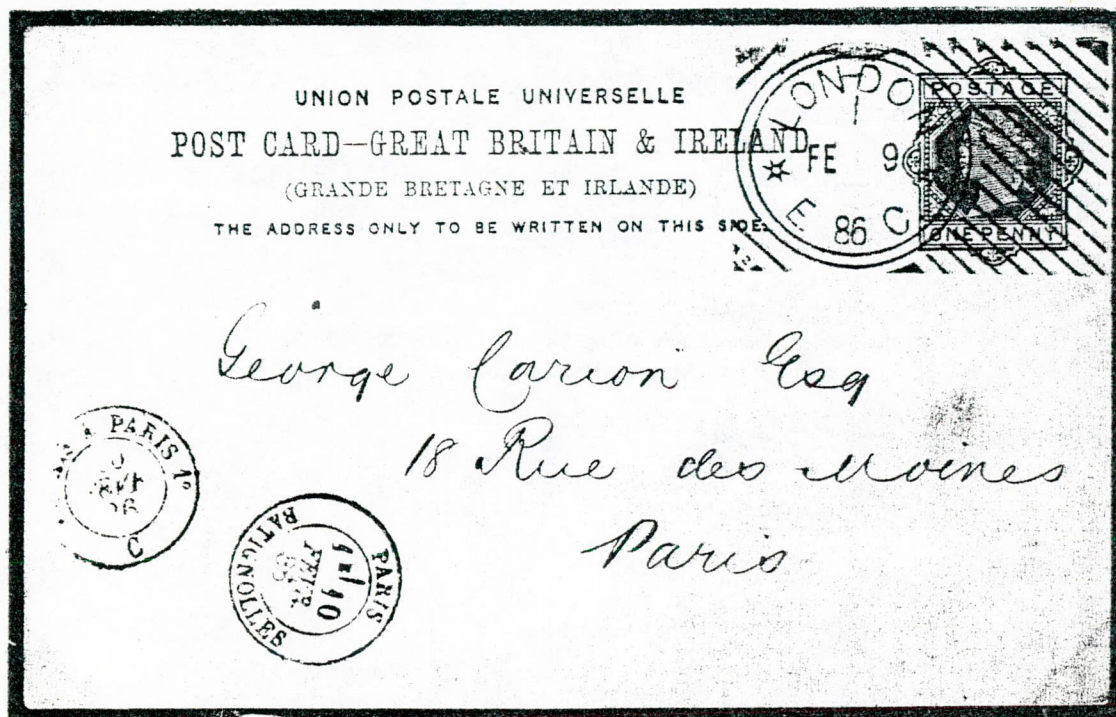 UNION POSTALE UNIVERSELLE
POST CARD—GREAT BRITAIN & IRELAND
(GRANDE BRETAGNE ET IRLANDE)
THE ADDRESS ONLY TO BE WRITTEN ON THIS SIDE.
LONDON
FE 9
86
E C
POSTAGE
ONE PENNY
George Carion Esq
18 Rue des Moines
Paris
A PARIS 1°
C
PARIS
10
FEVR
BATIGNOLLES